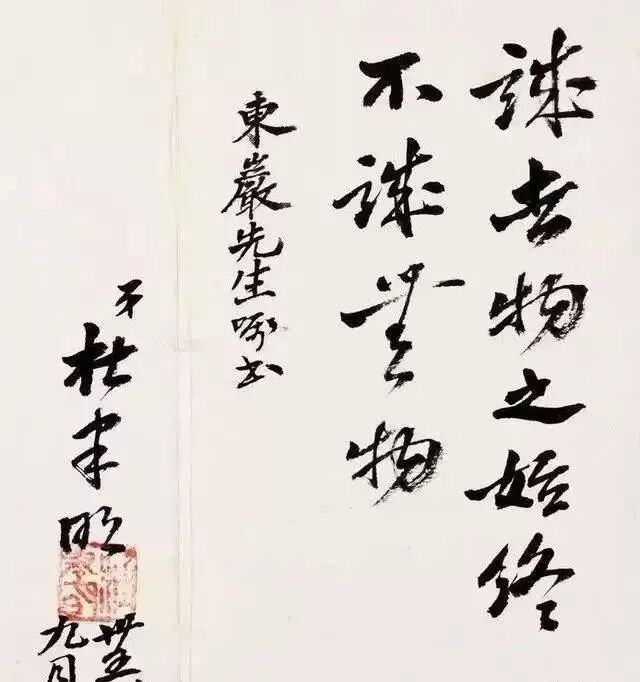 誠者物之始終
不誠無物
東巖先生囑書
弟杜聿明
卅五
九月